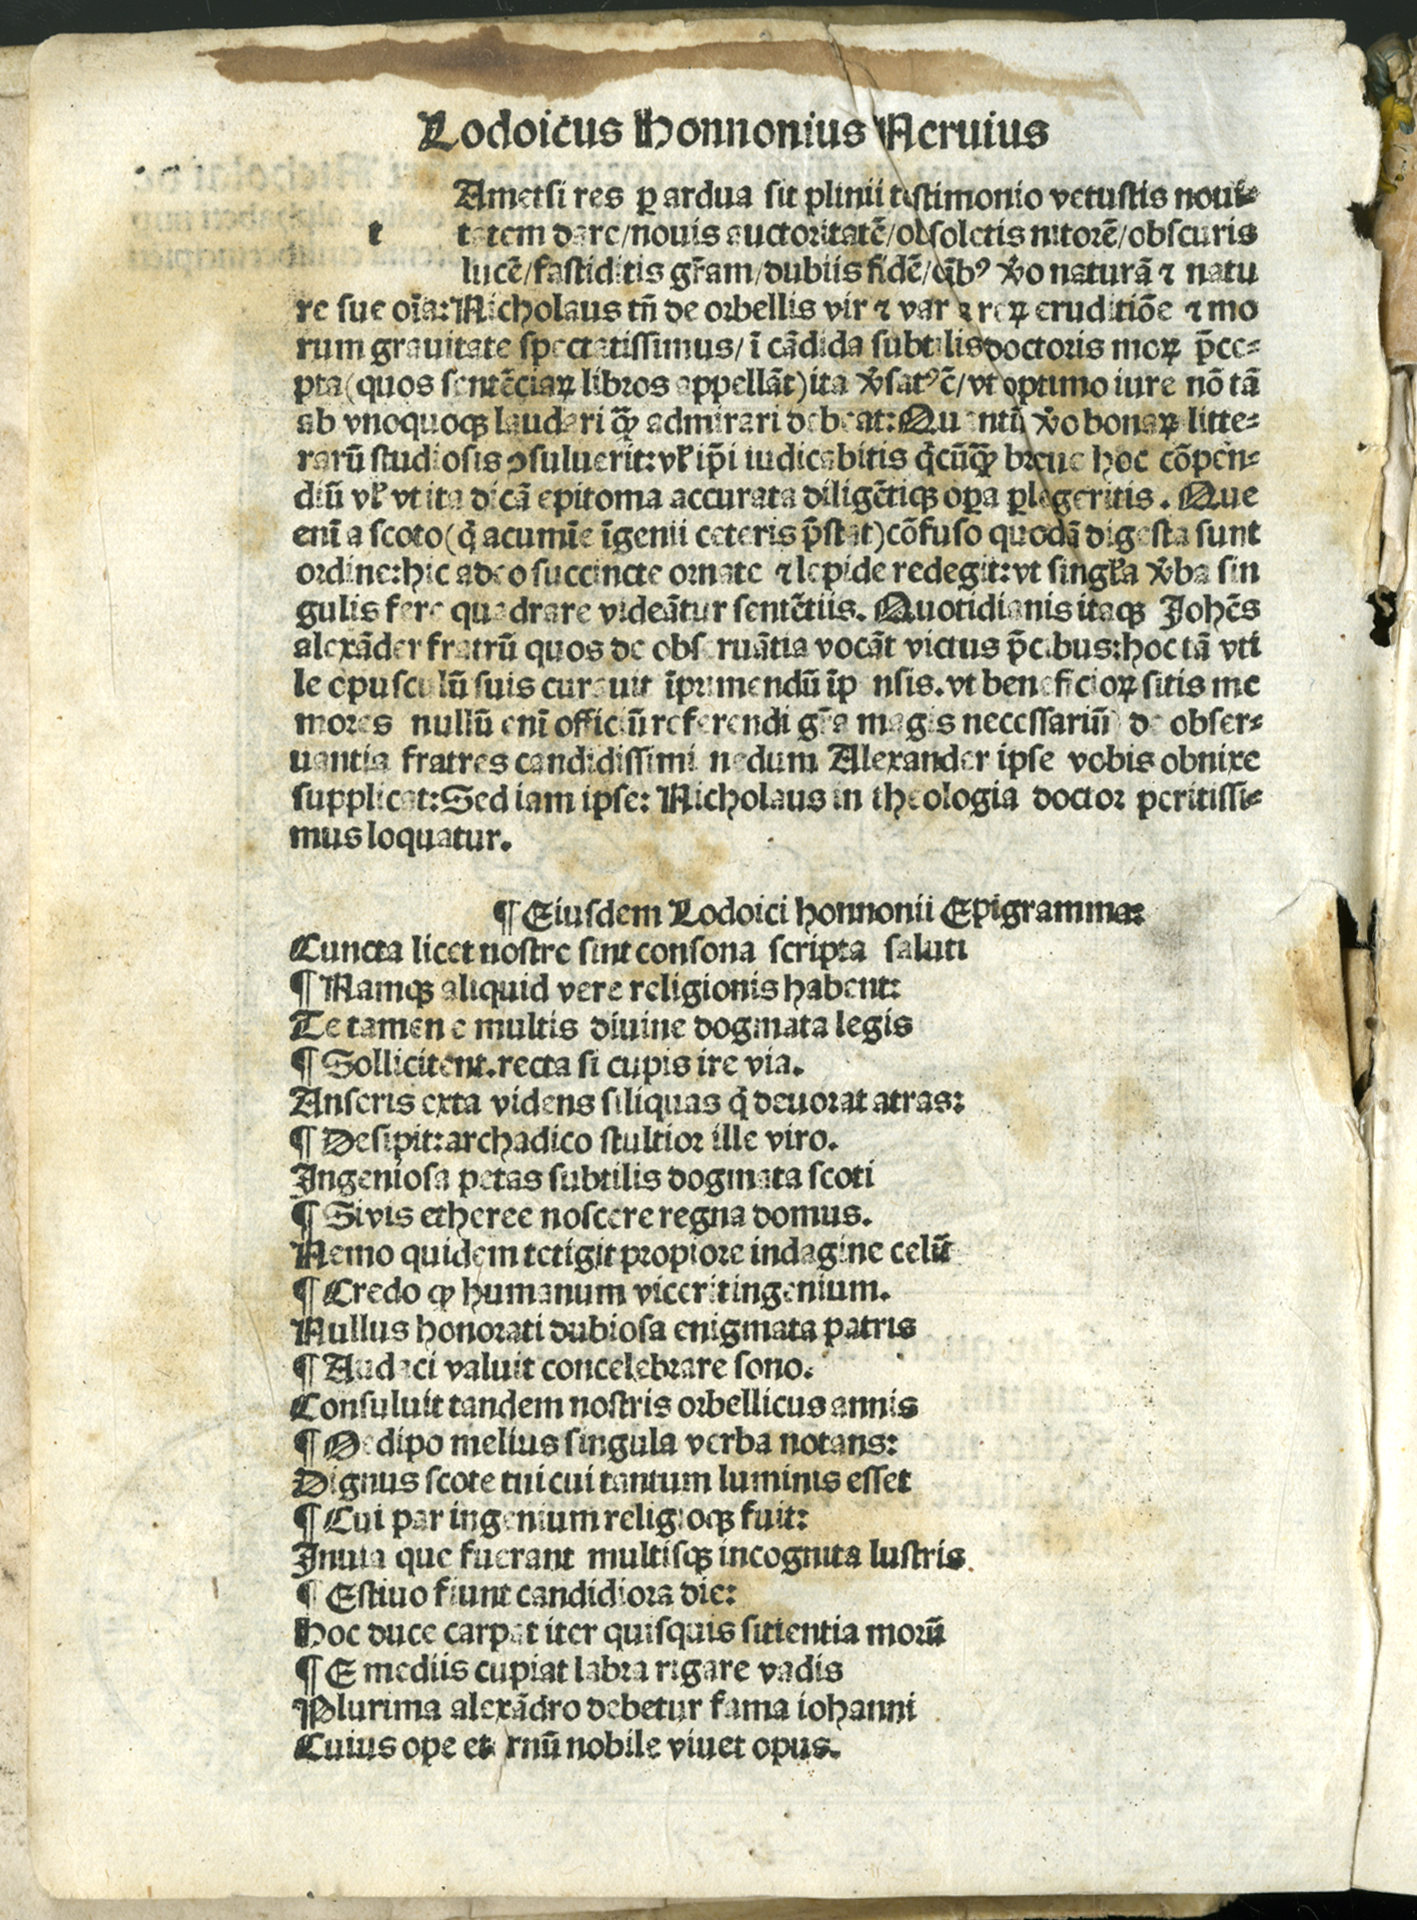 Lodoicus Honnonius Neruius
Ametsi res ꝑ ardua sit plinii testimonio vetustis noui⸗
t tatem dare/nouis auctoritatē/obsoletis nitorē/obscuris
lucē/fastiditis gr̄am/dubiis fidē/q̄bꝰ v̓o naturā ⁊ natu
re sue oīa: Nicholaus tn̄ de orbellis vir ⁊ var a reꝝ eruditiōe ⁊ mo
rum grauitate spectatissimus/ ī cādida subtilis doctoris moꝝ p̄ce⸗
pta(quos sentēciaꝝ libros appellāt)ita v̓satꝰē/vt optimo iure nō tā
ab vnoquoqꝫ laudari qꝫ̄ admirari debeat: Quantū v̓o bonaꝝ litte⸗
rarū studiosis ꝯsuluerit: vl̓ ip̄i iudicabitis q̄cūqꝫ̄ breue hoc cōpēn⸗
diū vl̓ vt ita dicā epitoma accurata diligētiqꝫ oꝑa ꝑlegeritis. Que
enī a scoto(q̄ acumīe īgenii ceteris p̄stat)cōfuso quodā digesta sunt
ordine:hic adeo succincte ornate ⁊ lepide redegit:vt singl̓a v̓ba sin
gulis fere quadrare videātur sentētiis. Quotidianis itaqꝫ Johēs
alexāder fratrū quos de obseruātia vocāt victus p̄cibus:hoc tā vti
le opusculū suis curauit īprimendū īpensis.vt beneficioꝝ sitis me
mores nullū enī officiū referendi gr̄a magis necessariū de obser⸗
uantia fratres candidissimi nedum Alexander ipse vobis obnixe
supplicat: Sed iam ipse: Nicholaus in theologia doctor peritissi⸗
mus loquatur.
¶ Eiusdem Lodoici honnonii Epigramma:
Cuncta licet nostre sint consona scripta saluti
¶ Namqꝫ aliquid vere religionis habent:
Te tamen e multis diuine dogmata legis
¶ Sollicitent.recta si cupis ire via.
Anseris exta videns siliquas q̄ deuorat atras:
¶ Desipit:archadico stultior ille viro.
Ingeniosa petas subtilis dogmata scoti
¶ Sivis etheree noscere regna domus.
Nemo quidem tetigit propiore indagine celū
¶ Credo ꝙ humanum vicerit ingenium.
Nullus honorati dubiosa enigmata patris
¶ Audaci valuit concelebrare sono.
Consuluit tandem nostris orbellicus annis
¶ Oedipo melius singula verba notans:
Dignus scote tui cui tantum luminis esset
¶ Cui par ingenium religioqꝫ fuit:
Inuia que fuerant multisqꝫ incognita lustris
¶ Estiuo fiunt candidiora die:
Hoc duce carpat iter quisquis sitientia morū
¶ E mediis cupiat labra rigare vadis
Plurima alexādro debetur fama iohanni
Cuius ope eternū nobile viuet opus.